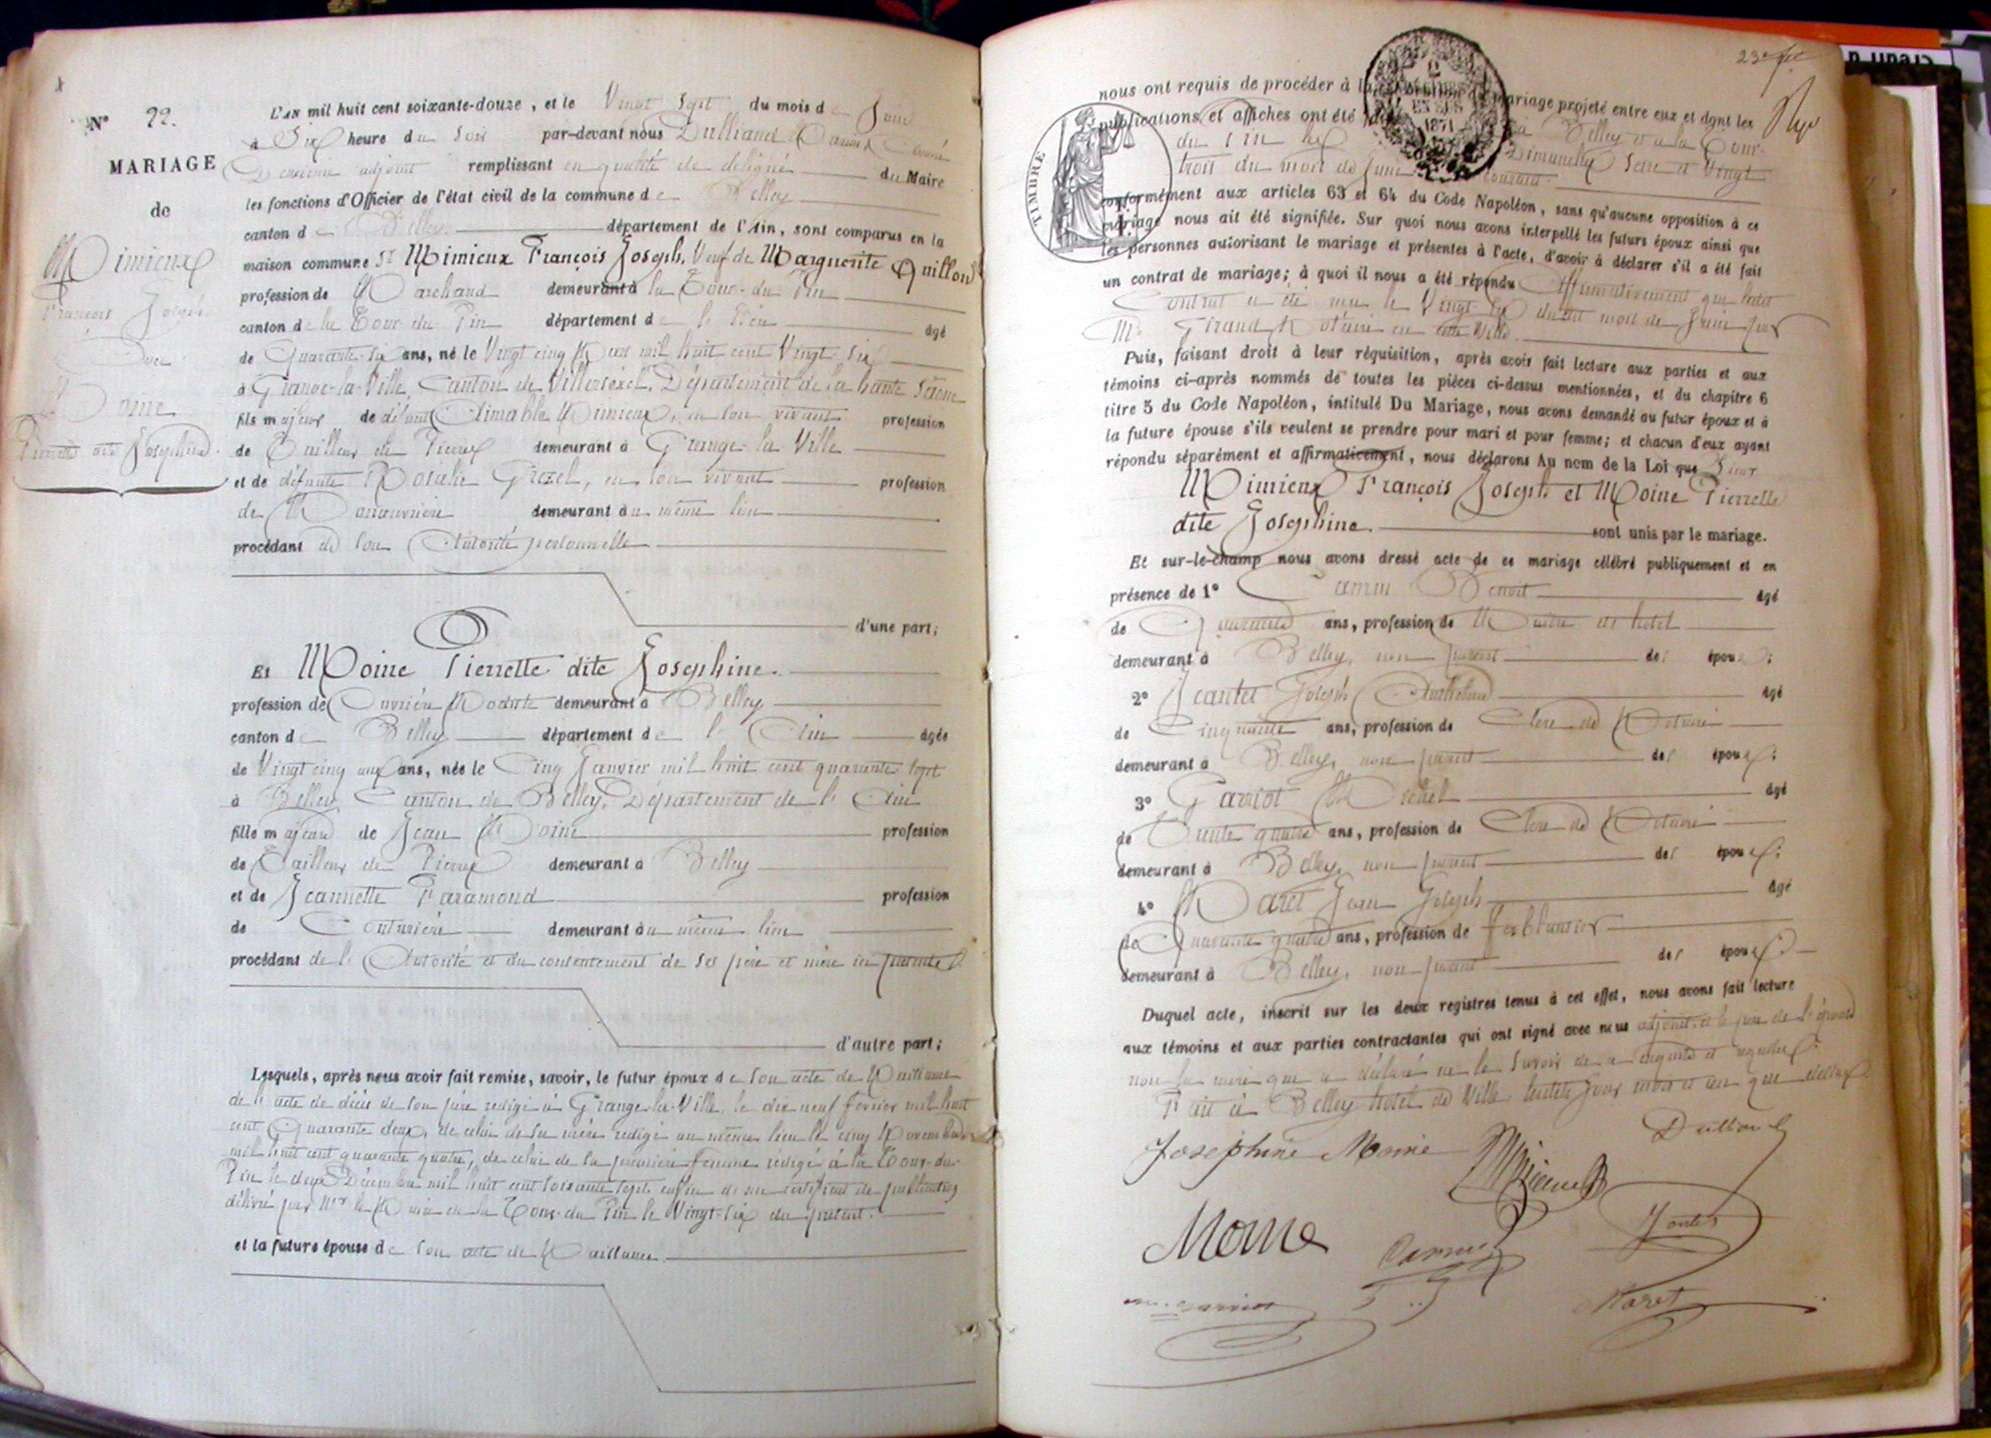 N° 22.
MARIAGE
de
Mimieux
François Joseph
Avec
Moine
Pierrette dite Joséphine.
L'an mil huit cent soixante-douze, et le Vingt Sept du mois de Juin
à Six heure du soir par-devant nous Dulliand
Deuxième adjoint remplissant en qualité de délégué du Maire
les fonctions d'Officier de l'état civil de la commune de Belley
canton de Belley département de l'Ain, sont comparus en la
maison commune Sr Mimieux François Joseph, Veuf de Marguerite Quillon
profession de Marchand demeurant à la Tour-du-Pin
canton de la Tour du Pin département de l'Isère âgé
de Quarante-six ans, né le Vingt cinq Mars mil huit cent Vingt-six
à Grange-la-Ville, Canton de Villersexel, Département de la haute Saône
fils majeur de défunt Aimable Mimieux, en son vivant profession
de Tailleur de Pierres demeurant à Grange-la Ville
et de défunte Rosalie Grezel, en son vivant profession
de Manouvrière demeurant au même lieu
procédant de son Autorité personnelle
d'une part;
Et Moine Pierrette dite Joséphine.
profession de Ouvrière Modiste demeurant à Belley
canton de Belley département de l'Ain âgée
de Vingt cinq ans, née le Cinq Janvier mil huit cent quarante sept
à Belley Canton de Belley, Département de l'Ain
fille majeure de Jean Moine profession
de Tailleur de Pierres demeurant à Belley
et de Jeannette Faramond profession
de Couturière demeurant au même lieu
procédant de l'Autorité et du consentement de ses père et mère ici présents
d'autre part;
Lesquels, après nous avoir fait remise, savoir, le futur époux de son acte de Naissance
de l'acte de décès de son père rédigé à Grange-la-Ville, le dix neuf février mil huit
cent Quarante deux, de celui de sa mère rédigé au même lieu le cinq Novembre
mil huit cent quarante quatre, de celui de sa première femme rédigé à la Tour-du-
Pin le deux Décembre mil huit cent soixante sept, enfin de un certificat de publication
délivré par Mr le Maire de la Tour-du Pin le Vingt-six du présent.
et la future épouse de son acte de Naissance
23e
nous ont requis de procéder à la célébration du mariage projeté entre eux et dont les
publications et affiches ont été faites à Belley et à la Tour-
du Pin les Dimanches Seize et Vingt
trois du mois de Juin courant.
1871
TIMBRE
conformément aux articles 63 et 64 du Code Napoléon, sans qu'aucune opposition à ce
mariage nous ait été signifiée. Sur quoi nous avons interpellé les futurs époux ainsi que
les personnes autorisant le mariage et présentes à l'acte, d'avoir à déclarer s'il a été fait
un contrat de mariage; à quoi il nous a été répondu Affirmativement que ledit
Contrat a été reçu le Vingt six dudit mois de Juin par
Me Girand Notaire en cette Ville.
Puis, faisant droit à leur réquisition, après avoir fait lecture aux parties et aux
témoins ci-après nommés de toutes les pièces ci-dessus mentionnées, et du chapitre 6
titre 5 du Code Napoléon, intitulé Du Mariage, nous avons demandé au futur époux et à
la future épouse s'ils veulent se prendre pour mari et pour femme; et chacun d'eux ayant
répondu séparément et affirmativement, nous déclarons Au nom de la Loi que Sieur
Mimieux François Joseph et Moine Pierrette
dite Joséphine. sont unis par le mariage.
Et sur-le-champ nous avons dressé acte de ce mariage célébré publiquement et en
présence de 1° Benoit âgé
de Quarante ans, profession de Maître de hotel
demeurant à Belley, non parent des époux;
2° Joseph Anthelme âgé
de Cinquante ans, profession de Clerc de Notaire
demeurant à Belley, non parent des époux;
3° Michel âgé
de Trente quatre ans, profession de Clerc de Notaire
demeurant à Belley, non parent des époux;
4° Maret Jean Joseph âgé
de Quarante quatre ans, profession de Ferblantier
demeurant à Belley, non parent des époux.
Duquel acte, inscrit sur les deux registres tenus à cet effet, nous avons fait lecture
aux témoins et aux parties contractantes qui ont signé avec nous adjoint, et le père de l'épouse
non la mère que a déclaré ne le savoir de ce enquise et requise.
Fait à Belley hotel de Ville lesdits jour mois et an que dessus.
Josephine Moine
Mimieux
Moine
Maret